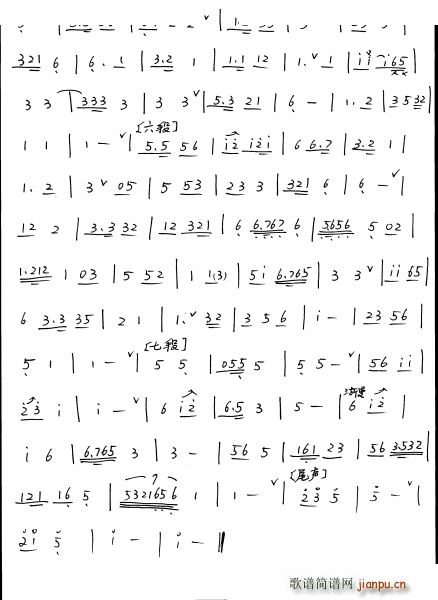 321 6 | 6. 1 | 3.2 1 | 1.1 12 | 1. ∨ 1 | i i i65
3 3 | 333 3 | 3 3 ∨ | 5.3 21 | 6 — | 1. 2 | 3532
1 1 | 1 — ∨ | [六段] 5.5 56 | i2 i2i | 66.7 | 3.2 1 |
1. 2 | 3 ∨ 05 | 5 53 | 23 3 | 321 6 | 6 — ∨ |
12 2 | 3.332 | 12 321 | 6 6.767 6 | 5656 5 02 |
1.212 1 03 | 5 52 | 1 1(3) | 5i 6.765 | 3 3 ∨ | ii 65
6 3.3 35 | 2 1 | 1. ∨ 32 | 3 5 6 | i — | 23 56 |
5 1 | 1 — ∨ | [七段] 5 5 | 055 5 | 5 5 — ∨ | 56 ii |
23 i | i — ∨ | 6 i2 | 6.5 3 | 5 — | 6 i2 |
i 6 | 6.765 3 | 3 — | 56 5 | 161 23 | 56 3.532 |
121 16 5 | 5321656 1 | 1 — ∨ | [尾声] 23 5 | 5 — ∨ |
2i 5 | i — | i — ‖
歌谱简谱网
jianpu.cn